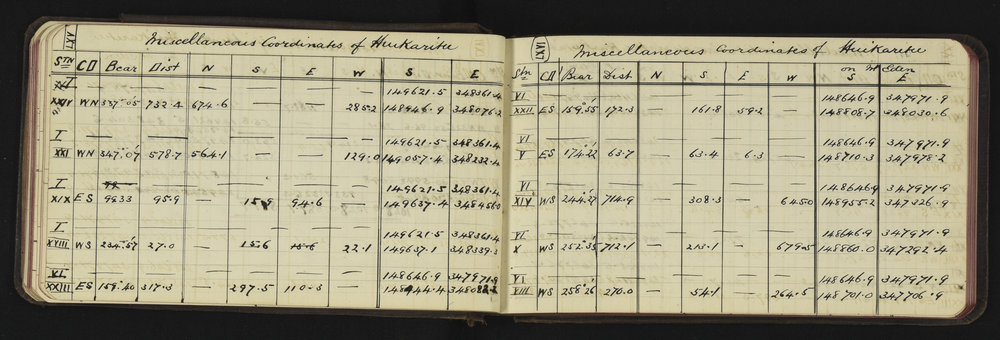 LXV
Miscellaneous Coordinates of Huikarite
STN CD Bear Dist N S E W S E
— — — — — — 149621.5 348361.4
XXIV WN 337°05' 732.4 674.6 — — 285.2 148946.9 348076.2
I — — — — — — 149621.5 348361.4
XXI WN 347°07' 578.7 564.1 — — 129.0 149057.4 348232.4
I — — — — — — 149621.5 348361.4
XIX ES 99°33 95.9 — 15.9 94.6 — 149637.4 348456.0
I — — — — — — 149621.5 348361.4
XVIII WS 234°57' 27.0 — 15.6 22.1 149637.1 348339.3
VI — — — — — — 148646.9 347971.9
XXIII ES 159°40 317.3 — 297.5 110.3 — 148944.4
LXVI
Miscellaneous Coordinates of Huikarite
on Mt Eden
Stn CD Bear Dist N S E W S E
VI — — — — — — 148646.9 347971.9
XXII ES 159°55' 172.3 — 161.8 59.2 — 148808.7 348030.6
VI — — — — — — 148646.9 347971.9
V ES 174°22' 63.7 — 63.4 6.3 — 148710.3 347978.2
VI — — — — — — 148646.9 347971.9
XIV WS 244°27' 714.9 — 308.3 — 645.0 148955.2 347326.9
VI — — — — — — 148646.9 347971.9
X WS 252°35' 712.1 — 213.1 — 679.5 148860.0 347292.4
VI — — — — — — 148646.9 347971.9
VIII WS 258°26' 270.0 — 54.1 — 264.5 148701.0 347706.9